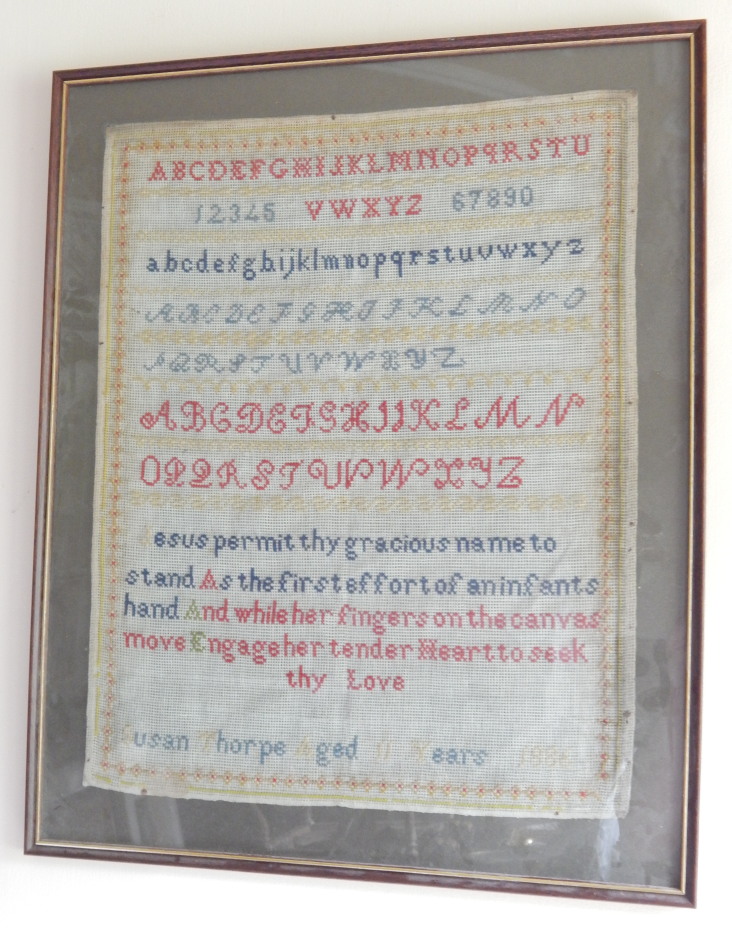 ABCDEFGHIJKLMNOPQRSTU
12345 VWXYZ 67890
abcdefghijklmnopqrstuvwxyz
ABCDEFGHIJKLMNO
PQRSTUVWXYZ
ABCDEFGHIJKLMN
OPQRSTUVWXYZ
Jesus permit thy gracious name to
stand As the first effort of an infants
hand And while her fingers on the canvas
move Engage her tender Heart to seek
thy Love
Susan Thorpe Aged Years